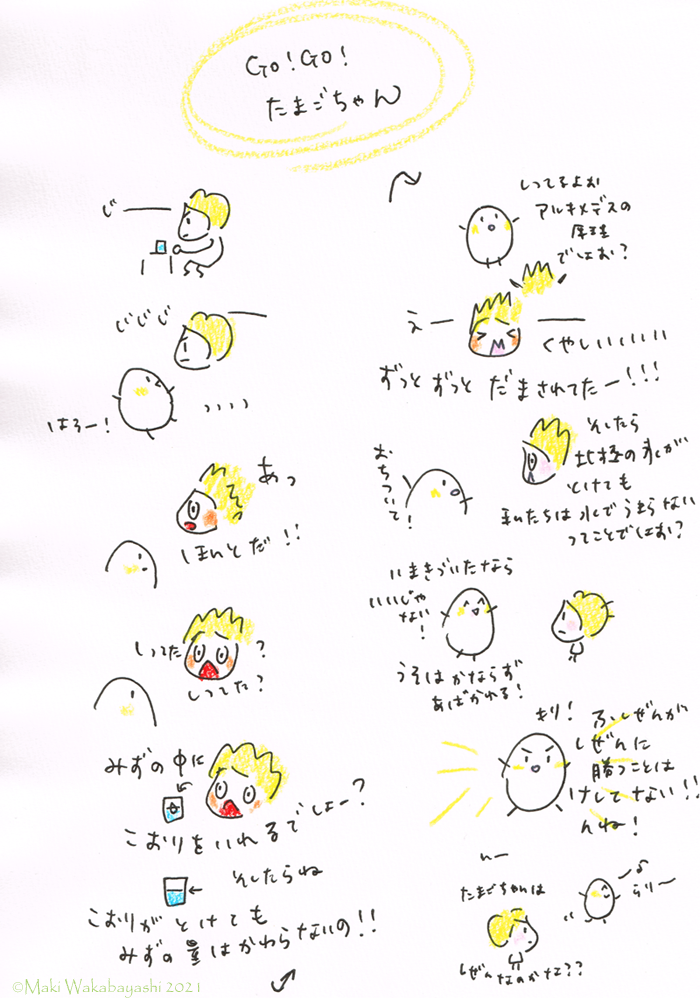 GO! GO!
たまごちゃん
じ――
じじじ――
はろー!
、、、、
あっ
ほんとだ!!
しってた?
しってた?
みずの中に
こおりをいれるでしょー?
そしたらね
こおりがとけても
みずの量はかわらないの!!
しってるよお
アルキメデスの
原理
でしょお?
えー――
くやしいいいいい
ずっとずっとだまされてたー!!!
おちついて!
そしたら
北極の氷が
とけても
私たちは水でうまらない
ってことでしょお?
いまきづいたなら
いいじゃ
ない!
うそはかならず
あばかれる!
きり!
ふしぜんが
しぜんに
勝つことは
けしてない!!
んね!
んー
たまごちゃんは
しぜんなのかな??
らりー
©Maki Wakabayashi 2021